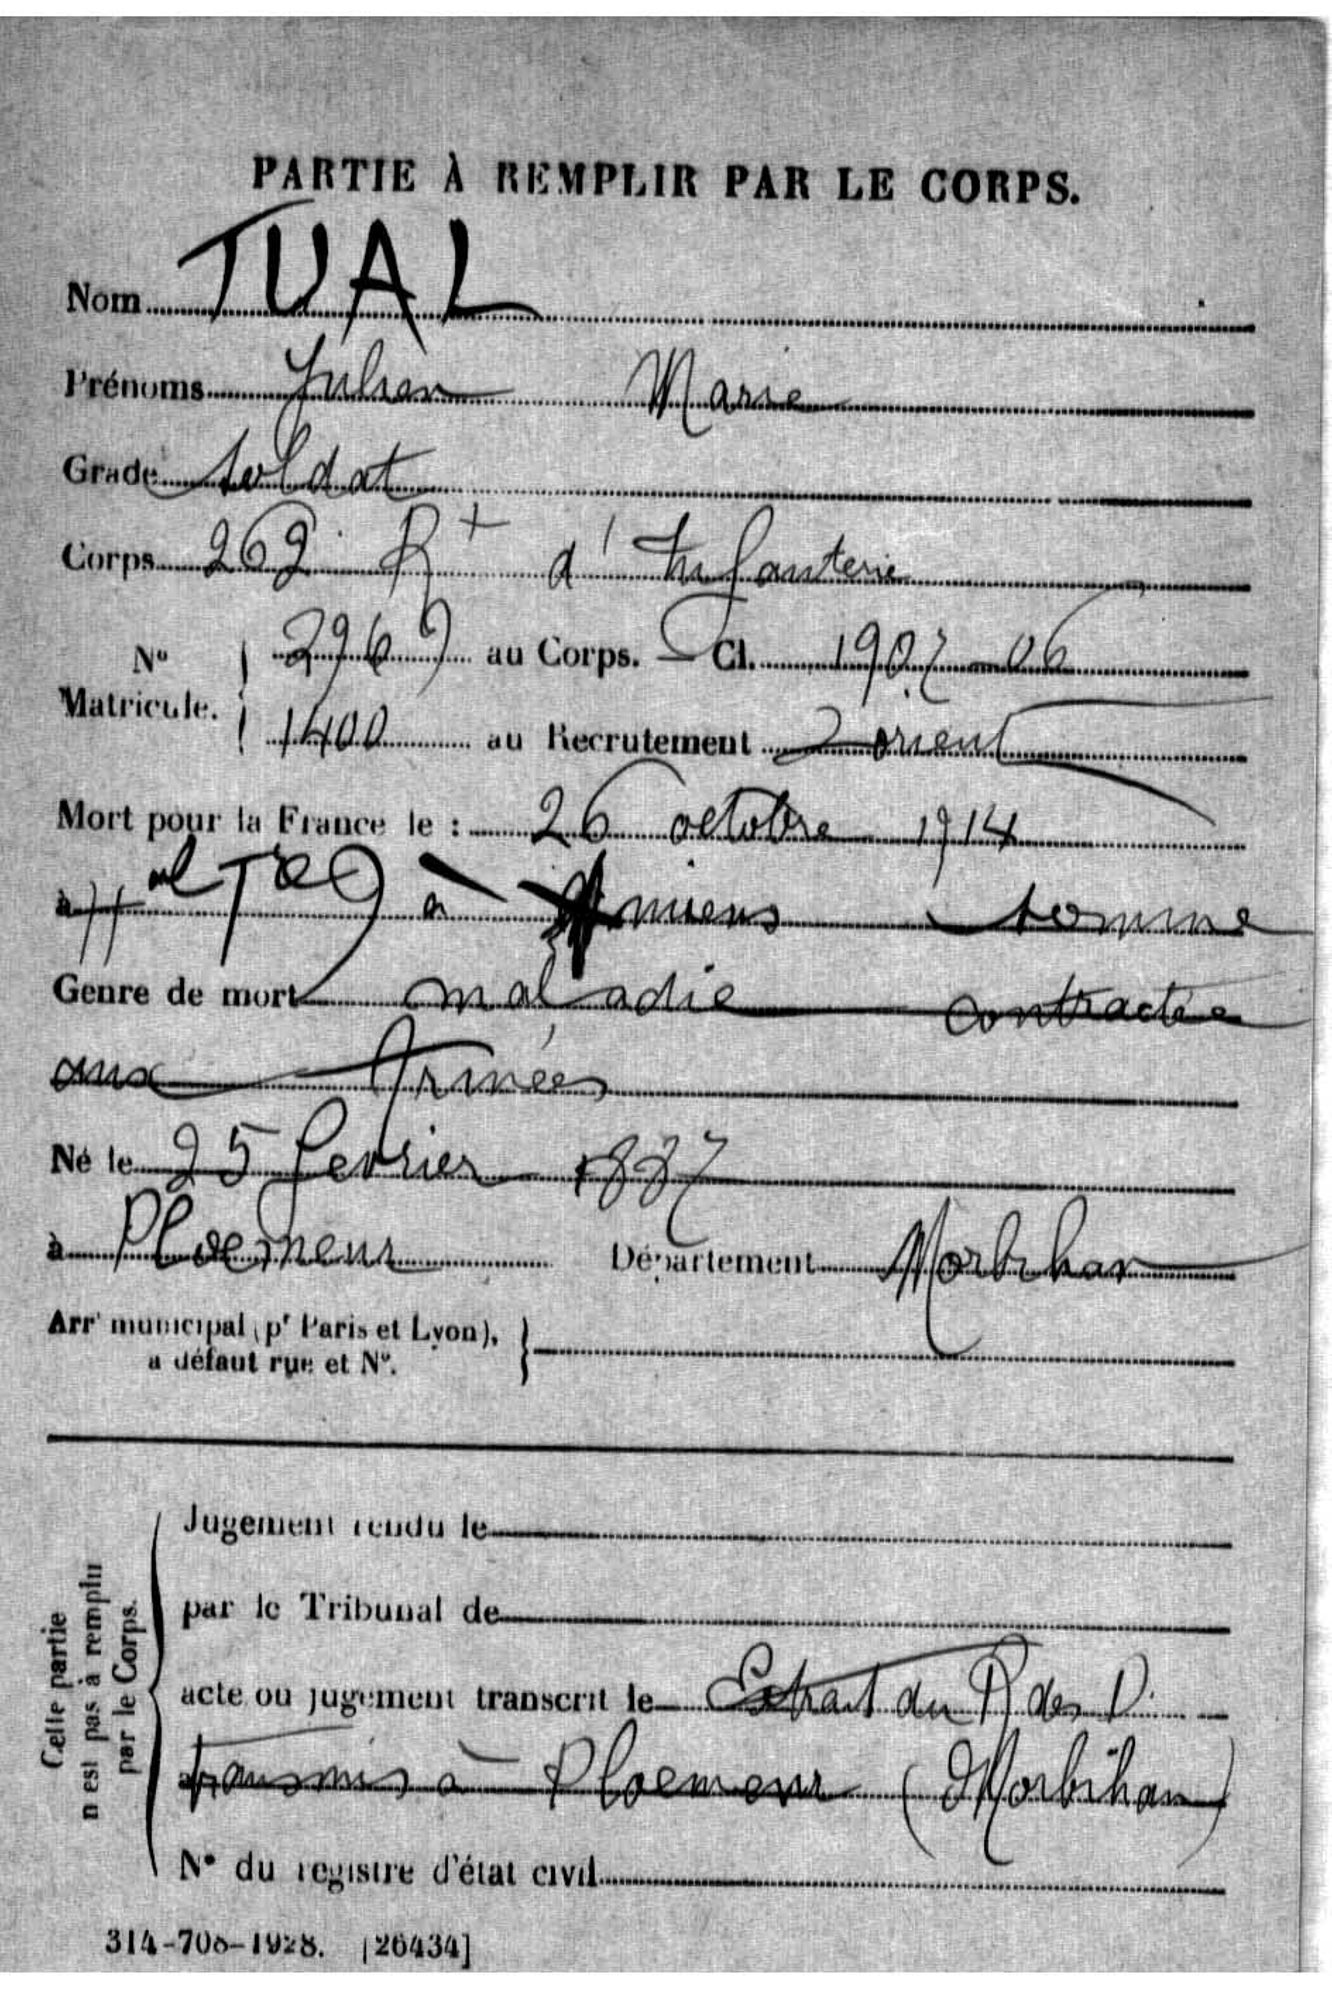 PARTIE À REMPLIR PAR LE CORPS.
Nom TUAL
Prénoms Julien Marie
Grade soldat
Corps 262 Rt d'Infanterie
No Matricule. 2969 au Corps. — Cl. 1907-06
1400 au Recrutement Lorient
Mort pour la France le : 26 octobre 1914
à à Amiens Somme
Genre de mort maladie contractée
aux Armées
Né le 25 février 1887
à Ploemeur Département Morbihan
Arrt municipal (pr Paris et Lyon),
à défaut rue et No.
Cette partie
n'est pas à remplir
par le Corps.
Jugement rendu le
par le Tribunal de
acte ou jugement transcrit le Extrait du R des D.
transmis à Ploemeur (Morbihan)
No du registre d'état civil
314-708-1928. [26434]